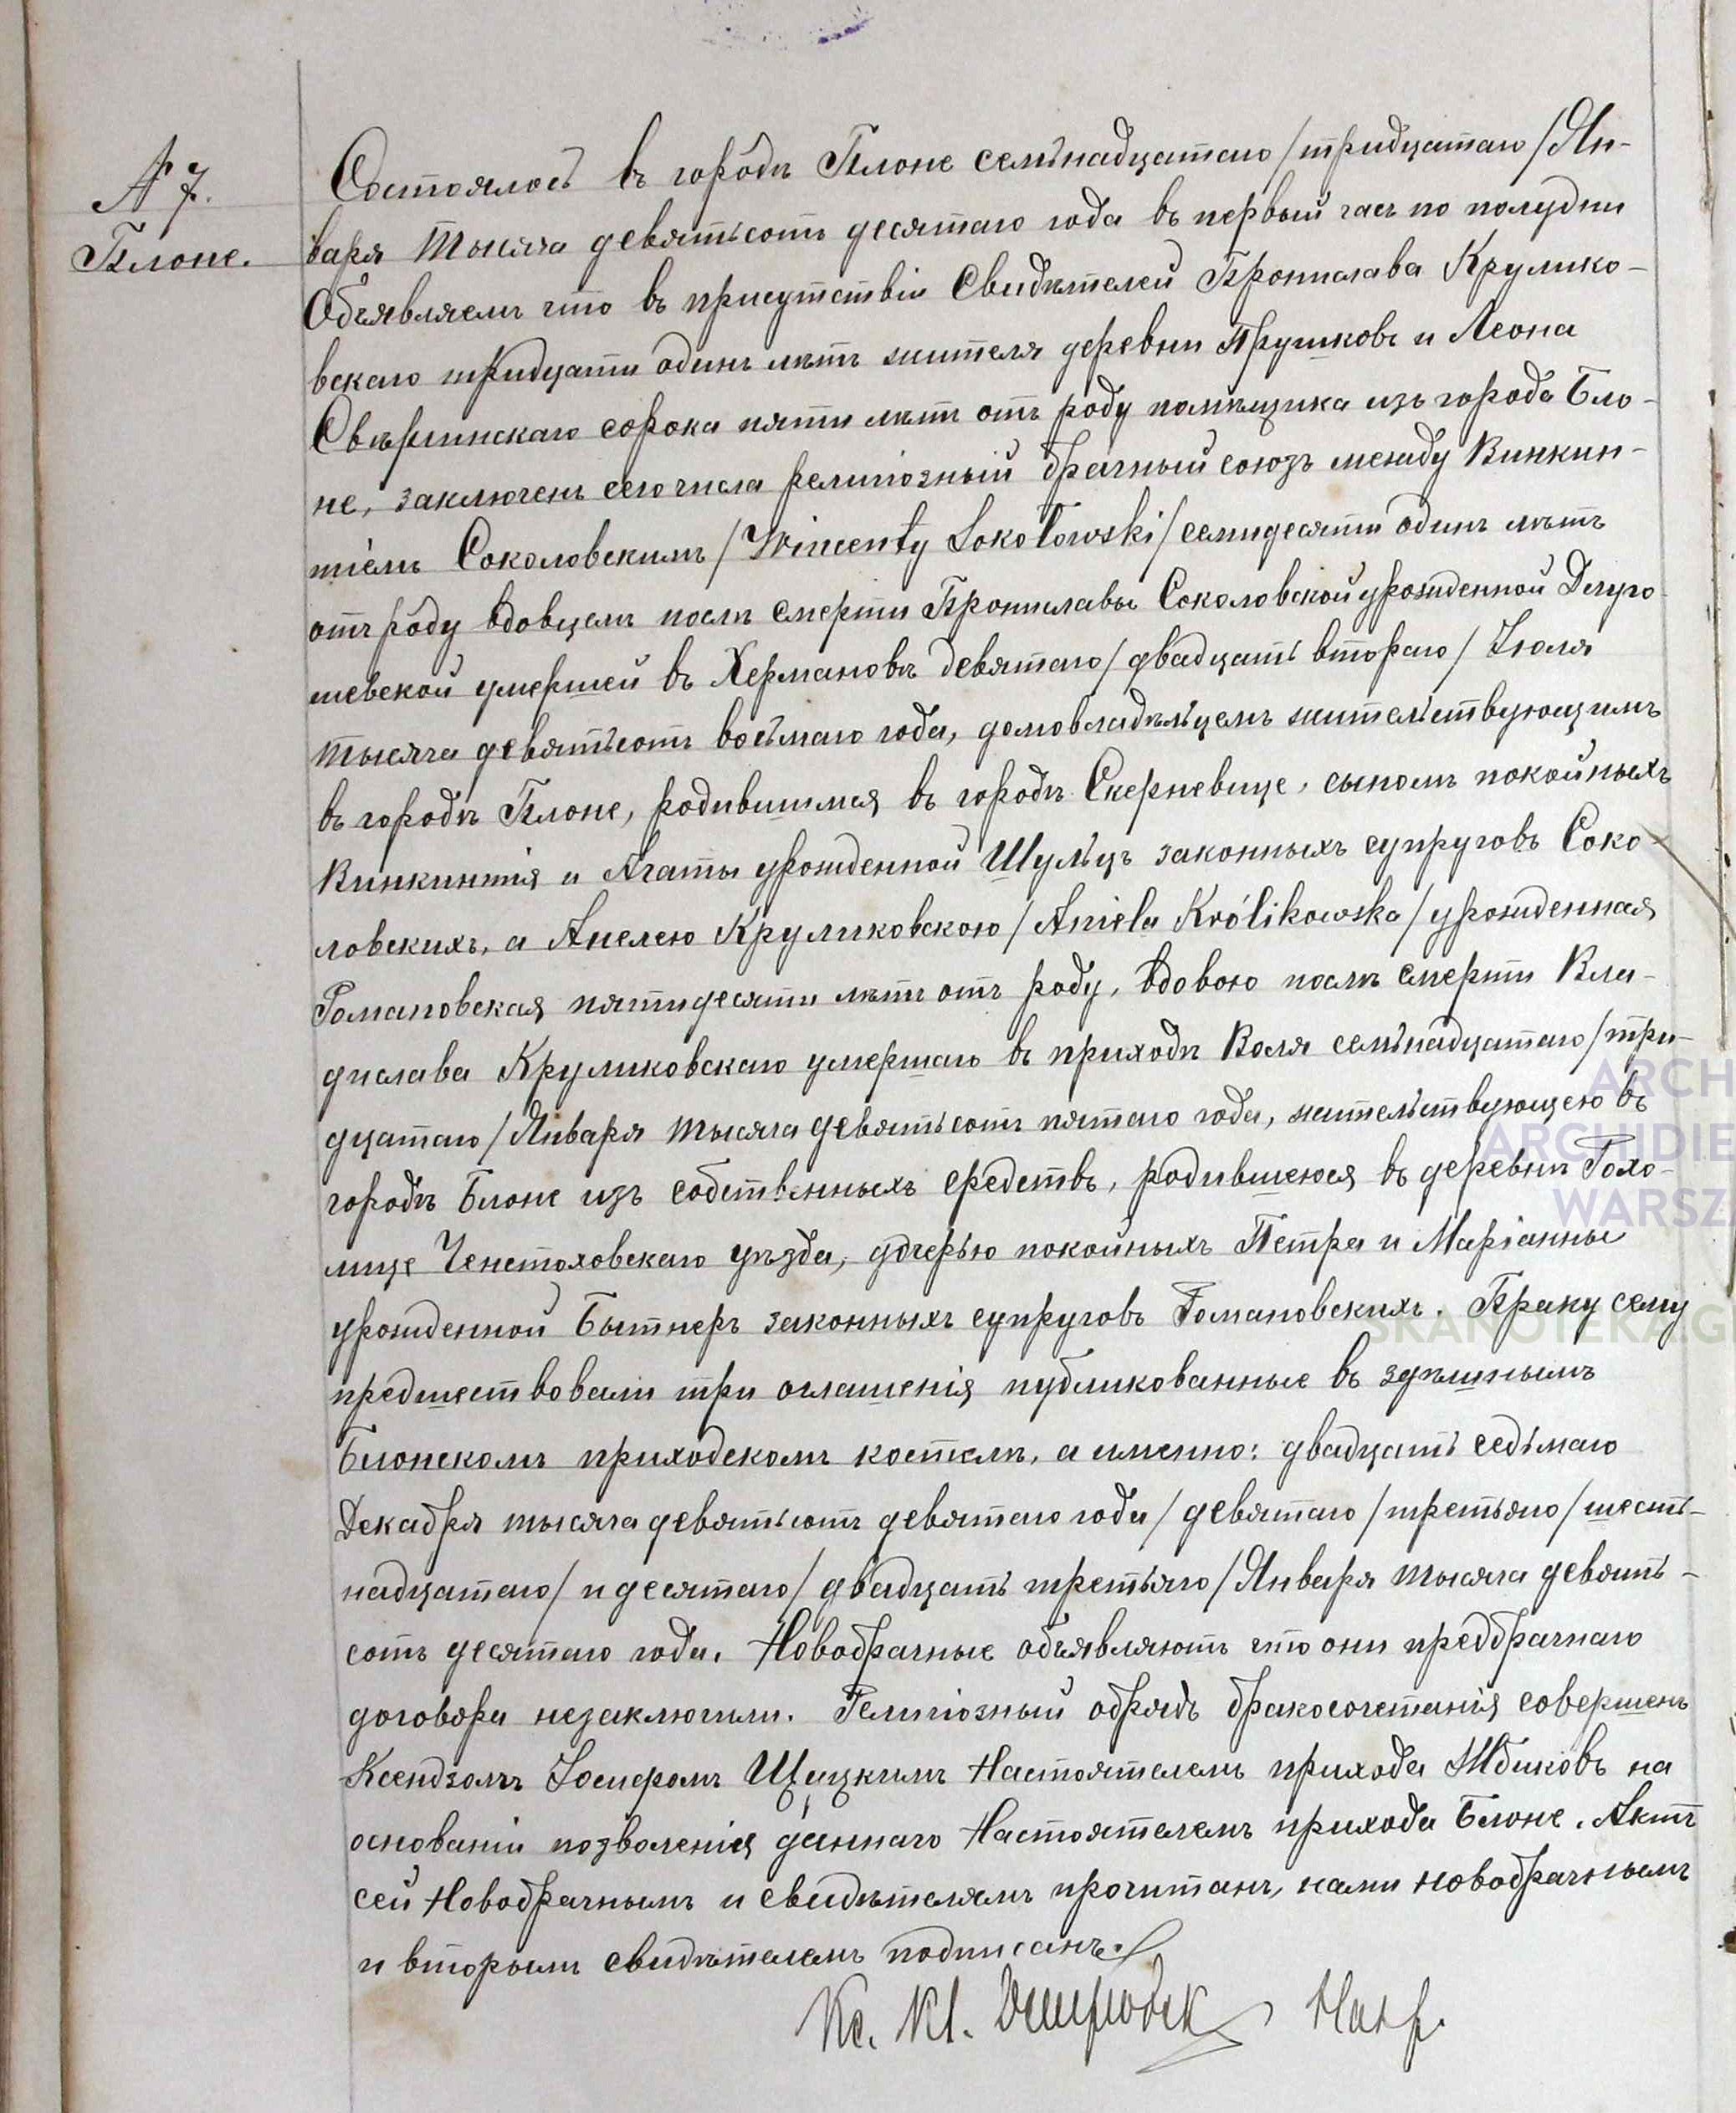 № 7.
Блоне.
Состоялось въ городѣ Блоне семьнадцатаго /тридцатаго/ Ян-
варя тысяча девятьсотъ десятаго года въ первый часъ по полудни
Объявляемъ что въ присутствіи Свидѣтелей Бронислава Крулико-
вскаго тридцати одинъ лѣтъ жителя деревни Прушковъ и Леона
Свѣржинскаго сорока пяти лѣтъ отъ роду помѣщика изъ города Бло-
не, заключенъ сего числа религіозный брачный союзъ между Винкин-
тіемъ Соколовскимъ /Wincenty Sokołowski/ семидесяти одинъ лѣтъ
отъ роду вдовцемъ послѣ смерти Брониславы Соколовской урожденной Длуго-
шевской умершей въ Хермановѣ девятаго /двадцать втораго/ Іюля
тысяча девятьсотъ восьмаго года, домовладѣльцемъ жительствующимъ
въ городѣ Блоне, родившимся въ городѣ Скерневице, сыномъ покойныхъ
Винкинтія и Агаты урожденной Шульцъ законныхъ супруговъ Соко-
ловскихъ, а Анелею Круликовскою /Aniela Królikowska/ урожденная
Романовская пятидесяти лѣтъ отъ роду, вдовою послѣ смерти Вла-
дислава Круликовскаго умершаго въ приходѣ Воля семьнадцатаго /три-
дцатаго/ Января тысяча девятьсотъ пятаго года, жительствующею въ
городѣ Блоне изъ собственныхъ средствъ, родившеюся въ деревнѣ Гохо-
лице Ченстоховскаго уѣзда, дочерью покойныхъ Петра и Маріанны
урожденной Бытнеръ законныхъ супруговъ Романовскихъ. Браку сему
предшествовали три оглашенія публикованные въ здѣшнымъ
Блонскомъ приходскомъ костелѣ, а именно: двадцать седьмаго
Декабря тысяча девятьсотъ девятаго года /девятаго/ третьяго /шест-
надцатаго/ и десятаго /двадцать третьяго/ Января тысяча девять-
сотъ десятаго года. Новобрачные объявляютъ что они предбрачнаго
договора незаключили. Религіозный обрядъ бракосочетанія совершенъ
Ксендзомъ Іосифомъ Щуцкимъ Настоятелемъ прихода Жбиковъ на
основаніи позволенія даннаго Настоятелемъ прихода Блоне. Актъ
сей Новобрачнымъ и свидѣтелямъ прочитанъ, нами новобрачнымъ
и вторымъ свидѣтелемъ подписанъ.
Кс. Кл.
ARCH
ARCHIDIE
WARSZ
SKANOTEKA.G